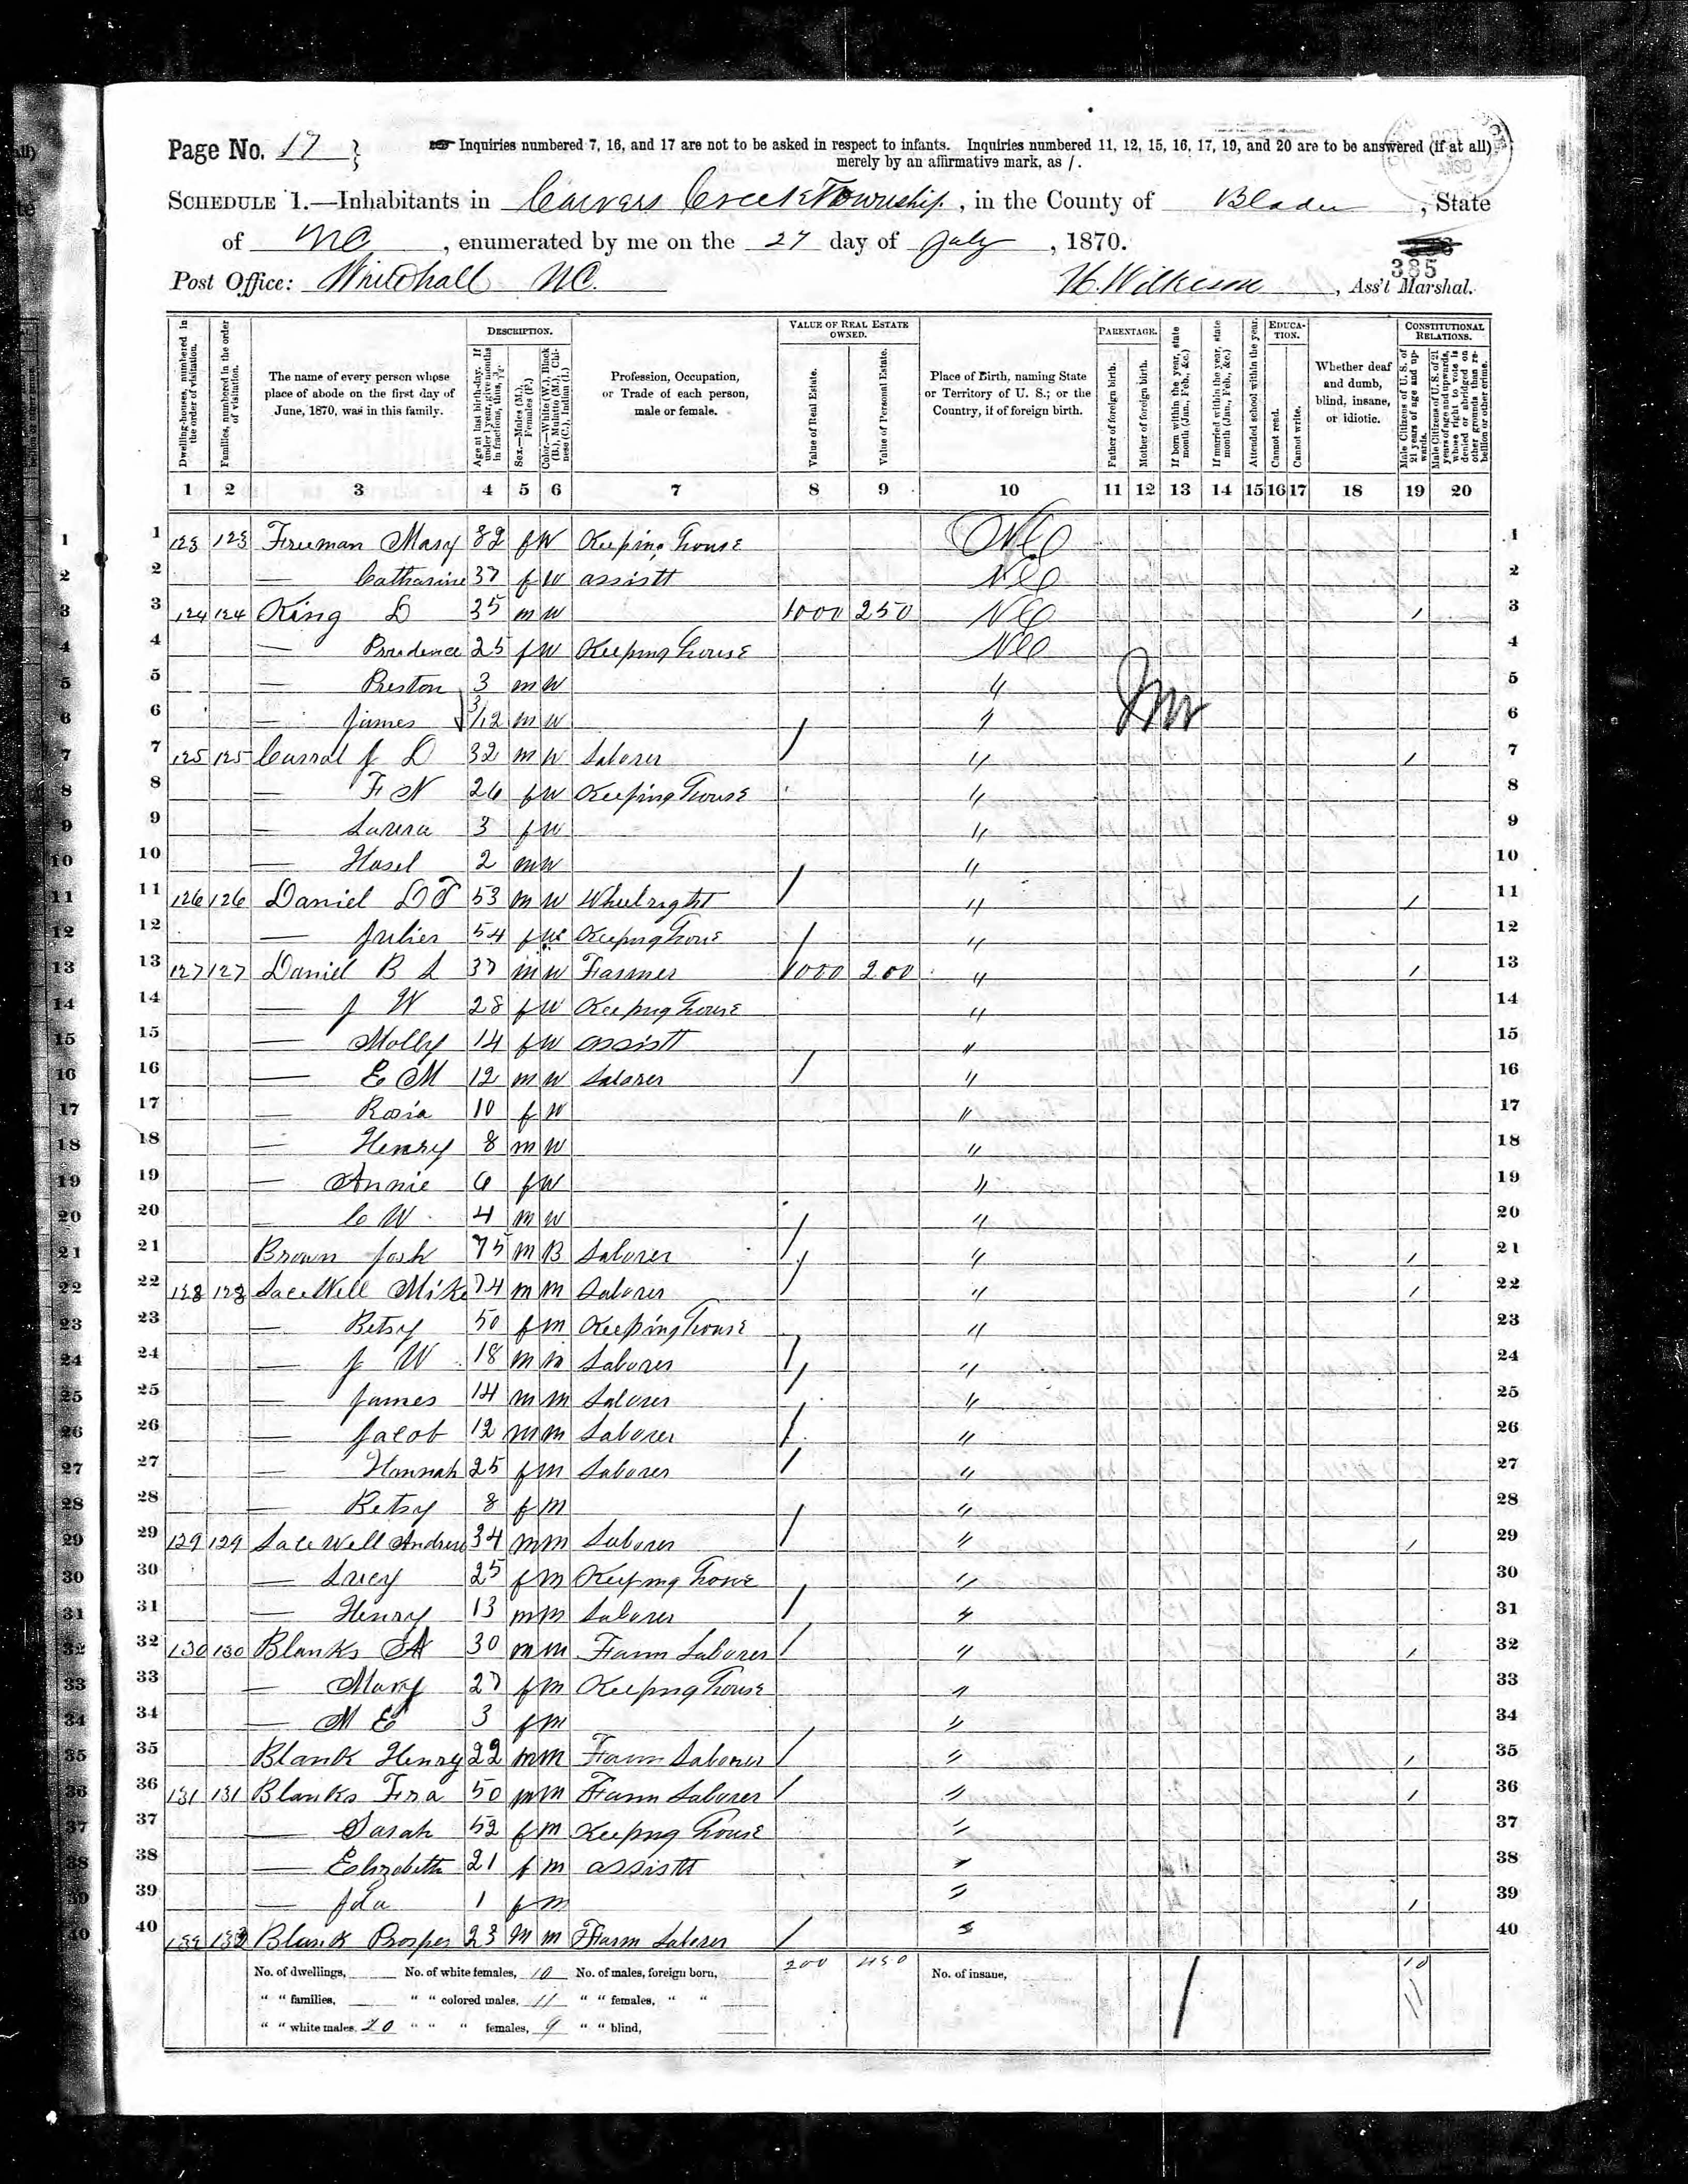 Page No. 17 } Inquiries numbered 7, 16, and 17 are not to be asked in respect to infants. Inquiries numbered 11, 12, 15, 16, 17, 19, and 20 are to be answered (if at all)
merely by an affirmative mark, as /.
SCHEDULE 1.—Inhabitants in Carvers Creek Township, in the County of Bladen, State
of NC, enumerated by me on the 27 day of July, 1870.
385
Post Office: Whitehall NC. , Ass't Marshal.
DESCRIPTION. VALUE OF REAL ESTATE OWNED. PARENTAGE. EDUCATION. CONSTITUTIONAL RELATIONS.
Dwelling-houses, numbered in the order of visitation. Families, numbered in the order of visitation. The name of every person whose place of abode on the first day of June, 1870, was in this family. Age at last birth-day. If under 1 year, give months in fractions, thus, 3/12. Sex.—Males (M.), Females (F.) Color.—White (W.), Black (B.), Mulatto (M.), Chinese (C.), Indian (I.) Profession, Occupation, or Trade of each person, male or female. Value of Real Estate. Value of Personal Estate. Place of Birth, naming State or Territory of U. S.; or the Country, if of foreign birth. Father of foreign birth. Mother of foreign birth. If born within the year, state month (Jan., Feb., &c.) If married within the year, state month (Jan., Feb., &c.) Attended school within the year. Cannot read. Cannot write. Whether deaf and dumb, blind, insane, or idiotic. Male Citizens of U. S. of 21 years of age and upwards. Male Citizens of U. S. of 21 years of age and upwards, whose right to vote is denied or abridged on other grounds than rebellion or other crime.
1 2 3 4 5 6 7 8 9 10 11 12 13 14 15 16 17 18 19 20
1 123 123 Freeman Mary 82 f W Keeping house NC 1
2 — Catharine 37 f W assistt NC 2
3 124 124 King D 35 m W 1000 250 NC / 3
4 — Prudence 25 f W Keeping house NC 4
5 — Preston 3 m W " 5
6 — James 3/12 m W " 6
7 125 125 J D 32 m W Laborer / " / 7
8 — F N 26 f W Keeping house " 8
9 — 3 f W " 9
10 — Hasel 2 m W " 10
11 126 126 Daniel D T 53 m W Wheelright / " / 11
12 — Julier 54 f W Keeping house / " 12
13 127 127 Daniel B L 37 m W Farmer 1000 200 " / 13
14 — J W 28 f W Keeping house " 14
15 — Molly 14 f W assistt " 15
16 — E M 12 m W Laborer / " 16
17 — Rosia 10 f W " 17
18 — Henry 8 m W " 18
19 — Annie 6 f W " 19
20 — C W 4 m W " 20
21 Brown Josh 75 m B Laborer / " / 21
22 128 128 Mike 74 m m Laborer / " / 22
23 — Betsy 50 f m Keeping house " 23
24 — J W 18 m m Laborer / " 24
25 — James 14 m m Laborer / " 25
26 — Jacob 12 m m Laborer / " 26
27 — Hannah 25 f m Laborer / " 27
28 — Betsy 8 f m " 28
29 129 129 Andrew 34 m m Laborer / " / 29
30 — Lucy 25 f m Keeping house " 30
31 — Henry 13 m m Laborer / " 31
32 130 130 Blanks A 30 m m Farm Laborer / " / 32
33 — Mary 27 f m Keeping house " 33
34 — M E 3 f m " 34
35 Blank Henry 22 m m Farm Laborer / " / 35
36 131 131 Blanks 50 m m Farm Laborer / " / 36
37 — Sarah 52 f m Keeping house " 37
38 — Elizabeth 21 f m assistt " 38
39 — Ida 1 f m " / 39
40 132 132 Blank Prosper 23 m m Farm Laborer / " 40
No. of dwellings, No. of white females, 10 No. of males, foreign born, 200 450 No. of insane, 10
" " families, " " colored males, 11 " " females, " " 11
" " white males, 20 " " " females, 9 " " blind,